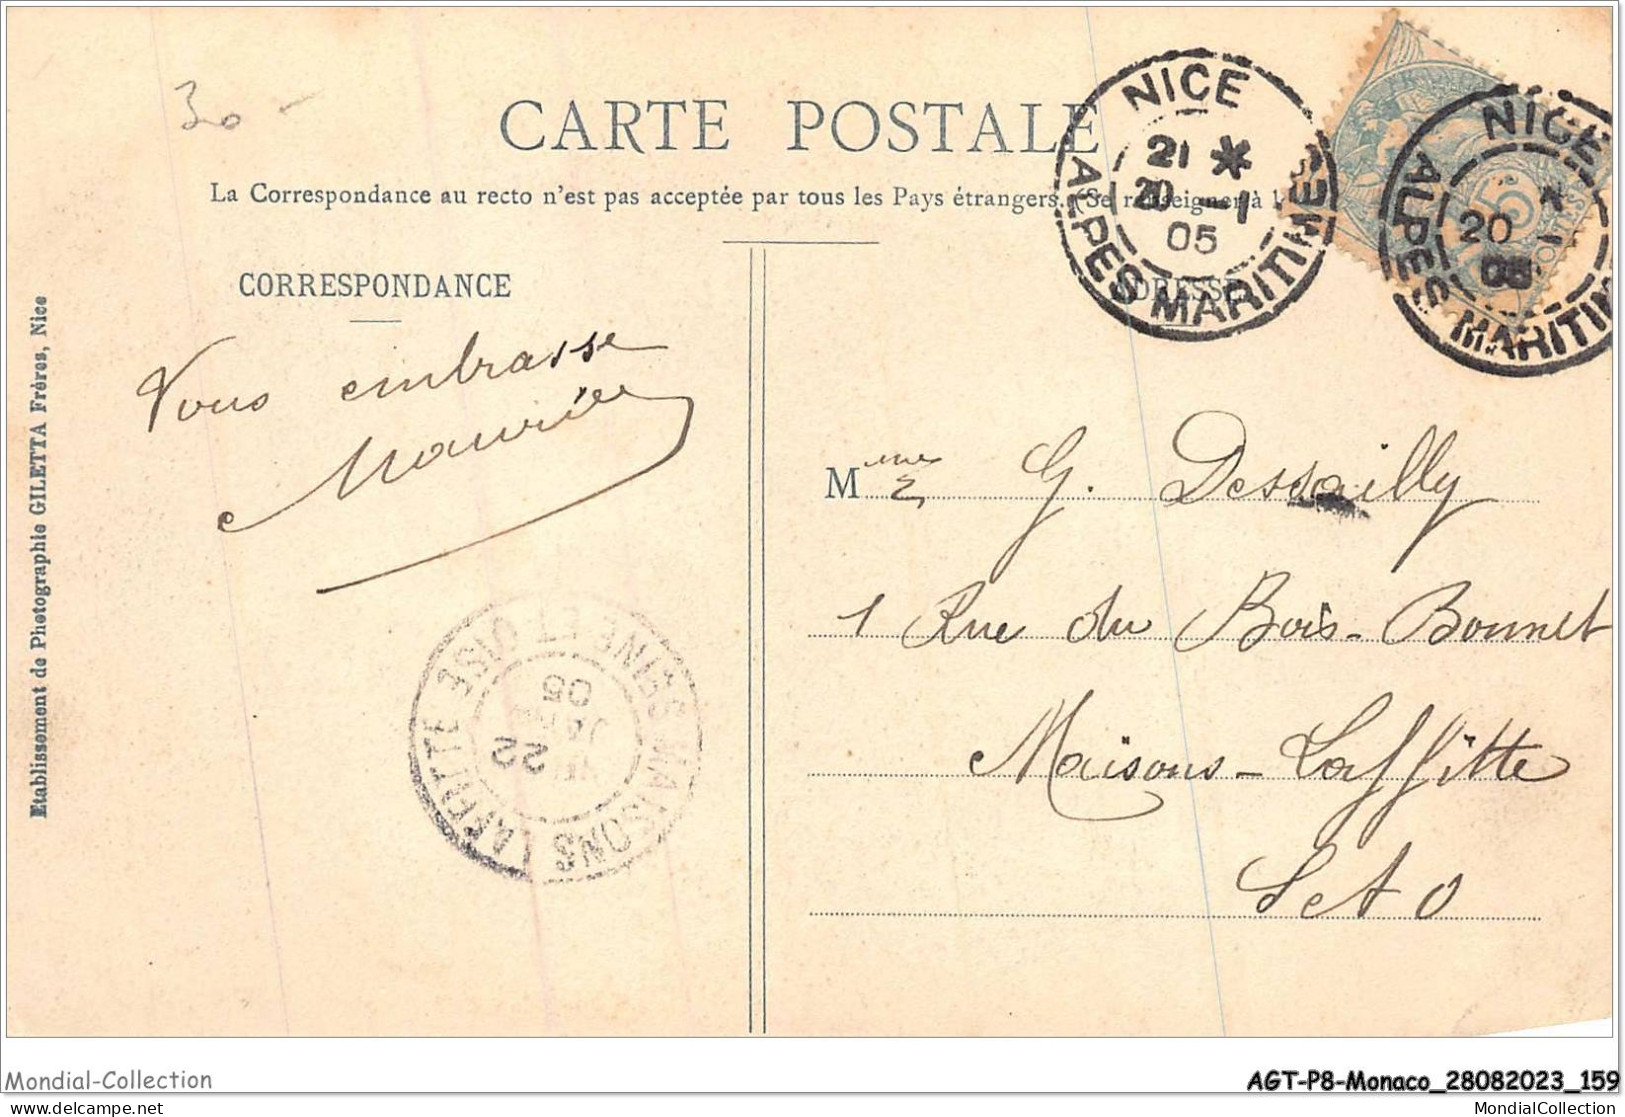 30 -
CARTE POSTALE
La Correspondance au recto n'est pas acceptée par tous les Pays étrangers. (Se renseigner à l
CORRESPONDANCE
ADRESSE
NICE
21 *
20 -1
05
ALPES MARITIMES
NICE
*
20 -1
05
ALPES MARITIM
5
Vous embrasse
Maurice
Mme G. Dessailly
1 Rue du Bois-Bonnet
Maisons-Laffitte
S et O
MAISONS LAFFITTE
SEINE ET OISE
22
JANV
05
Etablissement de Photographie GILETTA Frères, Nice
Mondial-Collection
AGT-P8-Monaco_28082023_159
MondialCollection
MondialCollection